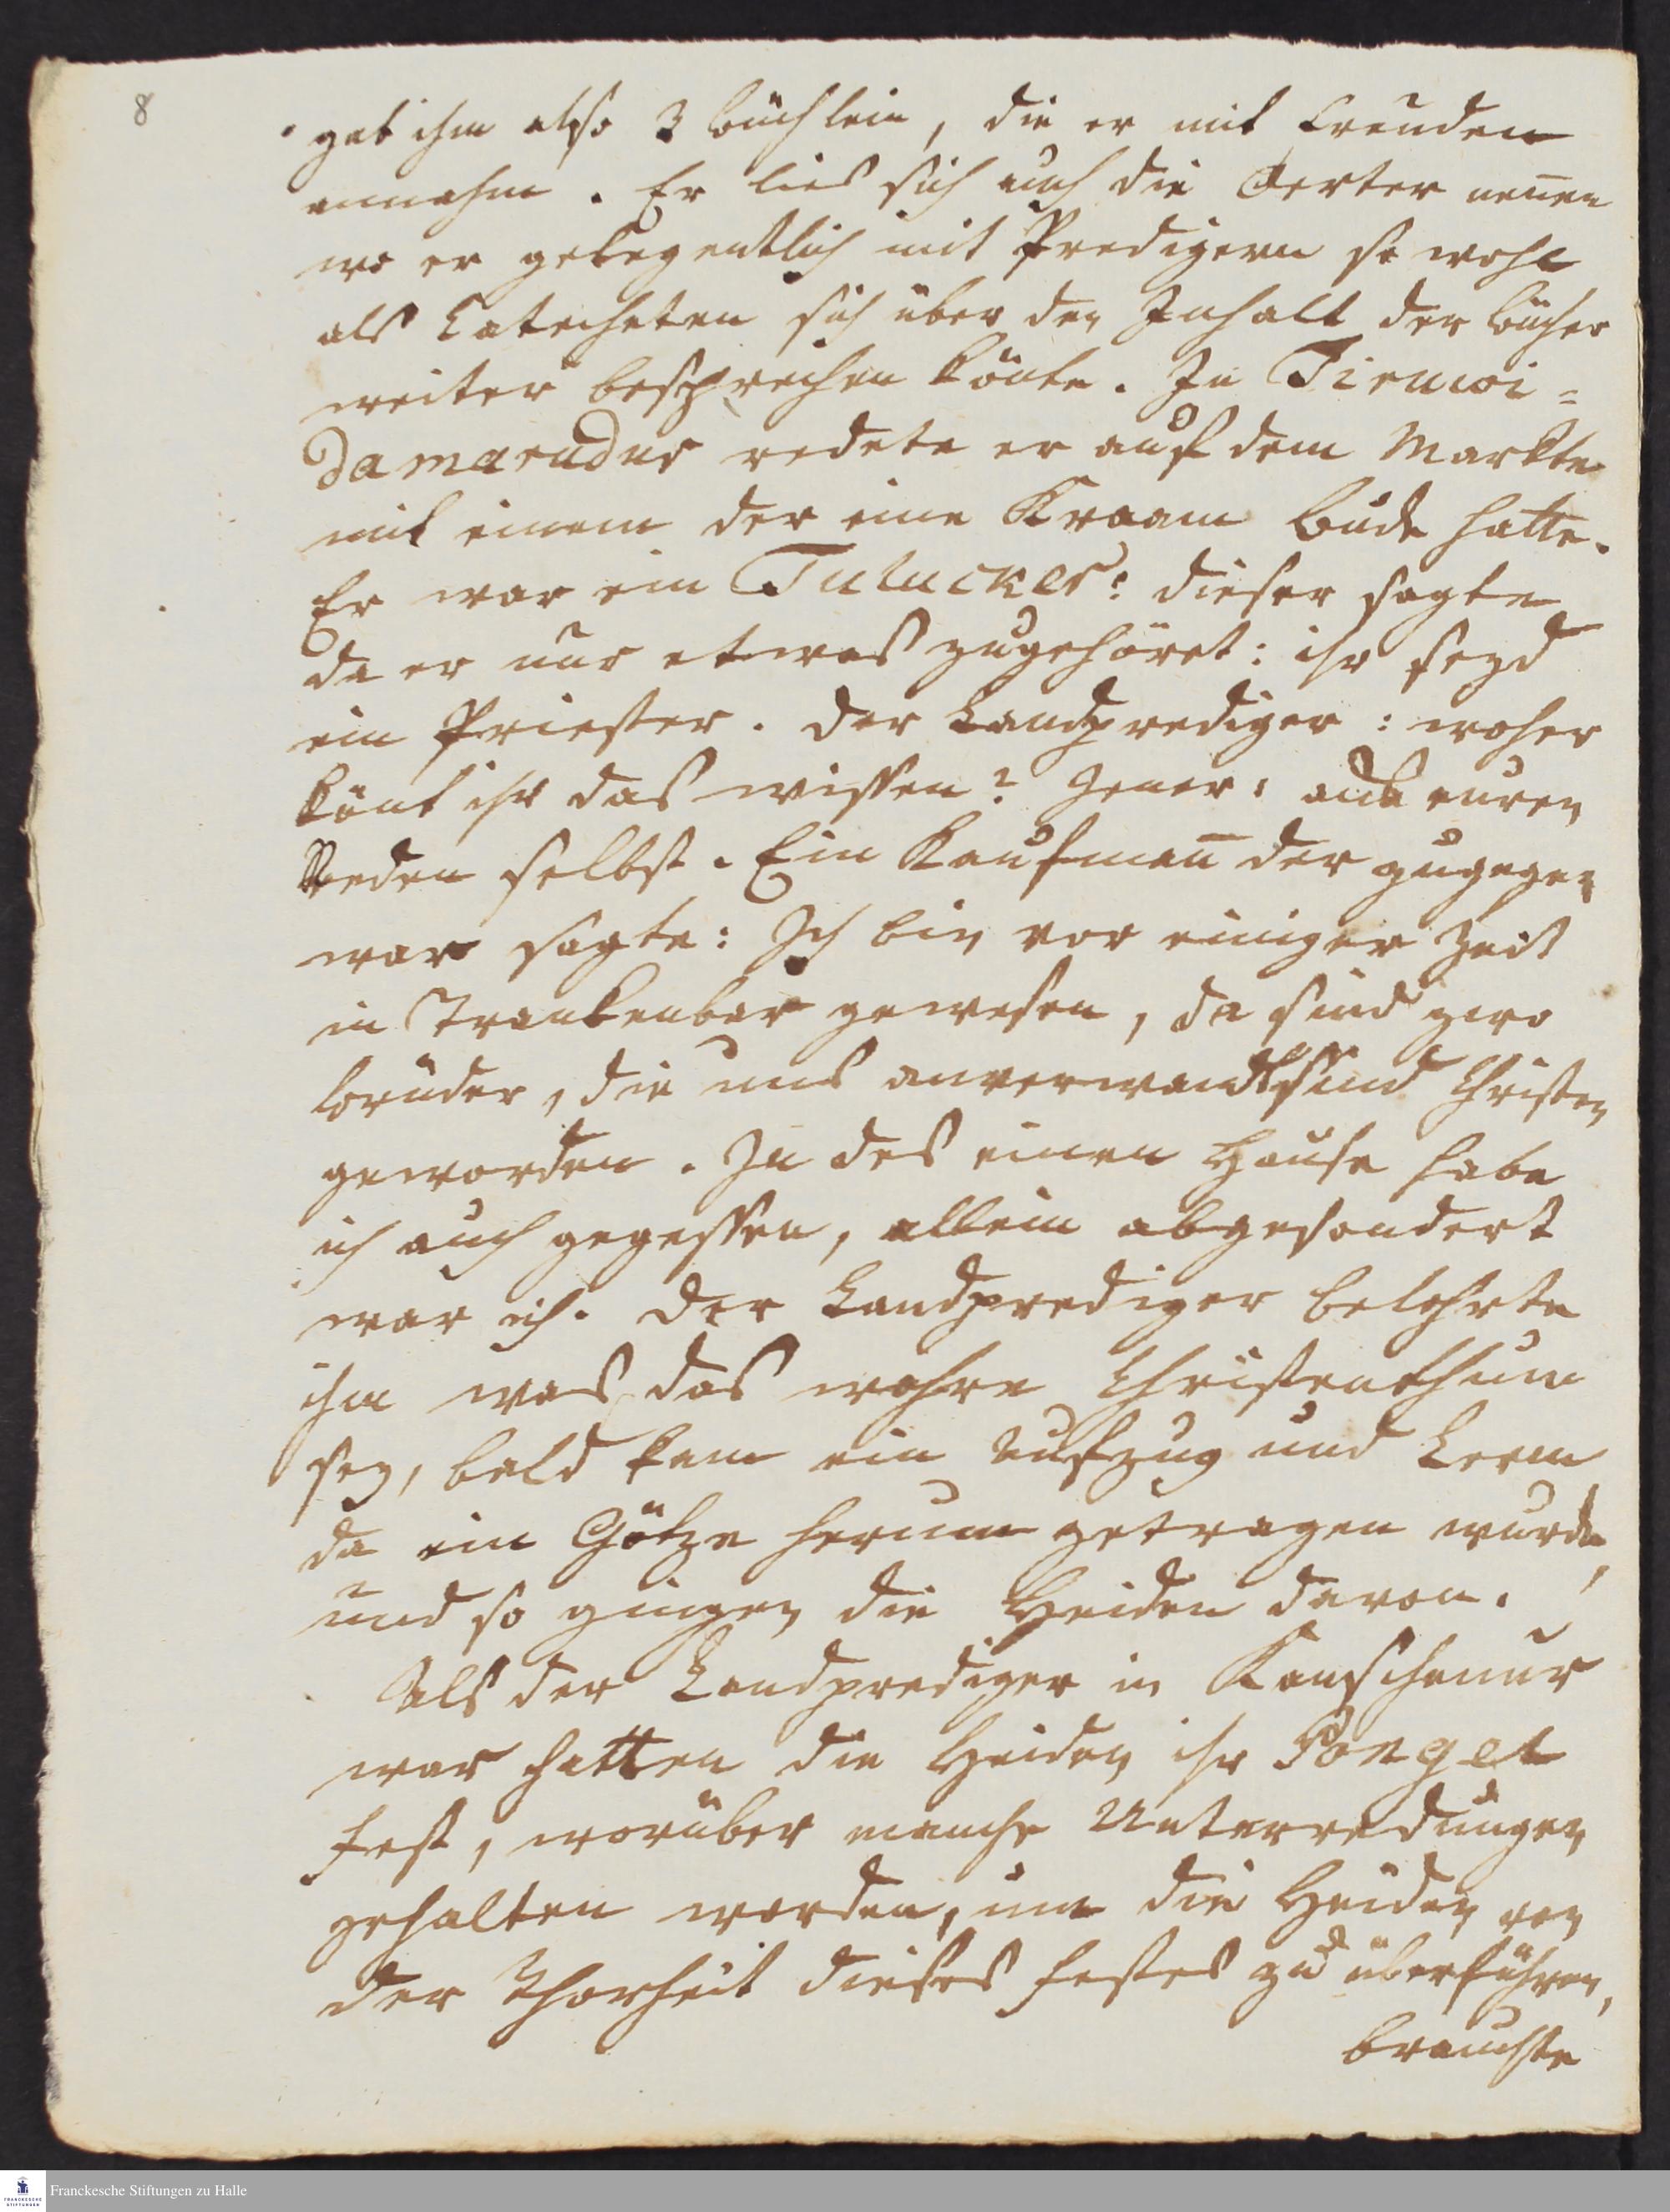 8
gab ihm also 3 büchlein, die er mit Freuden
annahm. Er lies sich auch die Oerter nen̄en
wo er gelegentlich mit Predigern so wohl
als Catecheten sich über den Inhalt der bücher
weiter besprechen könte. In Tiruwi=
damarudur redete er auf dem Markte
mit einem der eine Kraam bude hatte.
Er war ein Tulucker: dieser sagte
da er nur etwas zugehöret: ihr seyd
ein Priester. Der Landprediger: woher
könt ihr das wissen? Jener: aus euren
Reden selbst. Ein Kaufman̄ der zugegen
war sagte: Ich bin vor einiger Zeit
in Trankenbar gewesen, da sind zwo
brüder, die uns anverwandt sind Christen
geworden. In des einen Hause habe
ich auch gegessen, allein abgesondert
war ich. Der Landprediger belehrte
ihm was das wahre Christenthum
sey, bald kam ein Aufzug und Lerm
da ein Götze herum getragen wurde,
und so gingen die Heiden davon.
Als der Landprediger in Kanschenur
war hatten die Heiden ihr Pongel
fest, worüber manche Unterredungen
gehalten worden, um die Heiden von
der Thorheit dieses festes zu überführen,
brauchte
Franckesche Stiftungen zu Halle
FRANCKESCHE
STIFTUNGEN